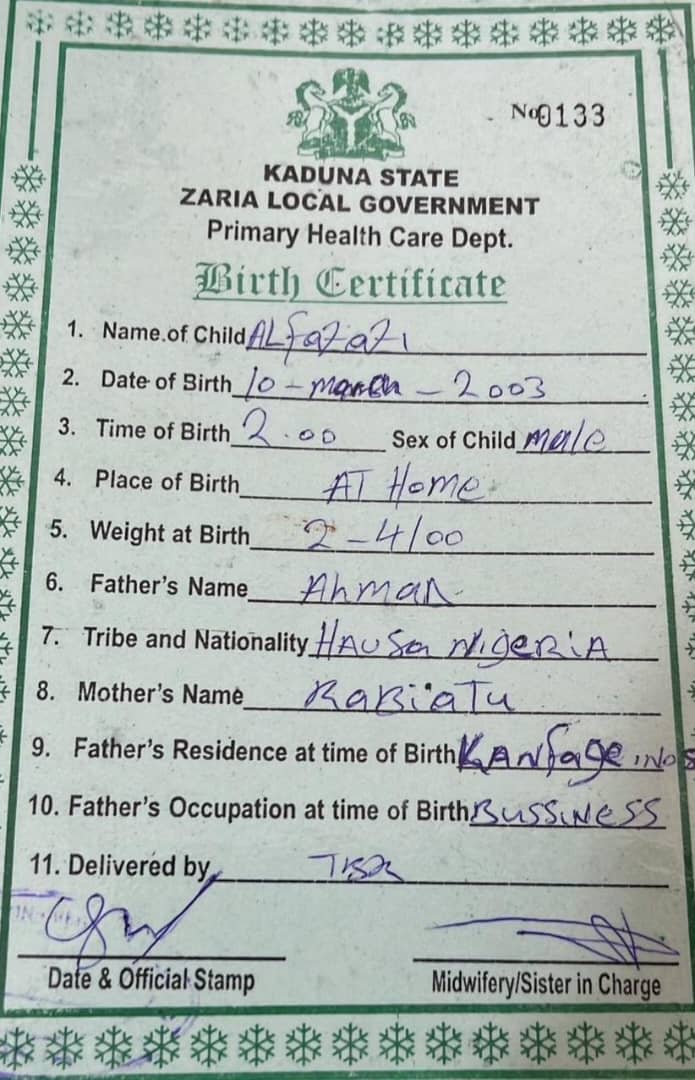 No 0133
KADUNA STATE
ZARIA LOCAL GOVERNMENT
Primary Health Care Dept.
Birth Certificate
1. Name of Child ALfazazi
2. Date of Birth 10 - march - 2003
3. Time of Birth 2.00 Sex of Child male
4. Place of Birth AT Home
5. Weight at Birth 2-4/00
6. Father's Name Ahmad
7. Tribe and Nationality HAUSa NigeRiA
8. Mother's Name RaBiaTu
9. Father's Residence at time of Birth KANfage
10. Father's Occupation at time of Birth BUSSiNESS
11. Delivered by
Date & Official Stamp Midwifery/Sister in Charge